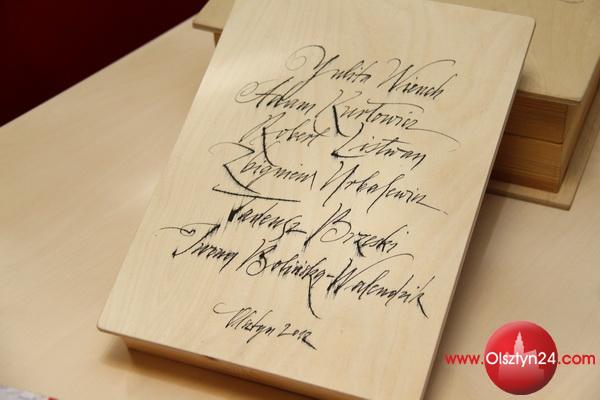 Julita Wiench
Adam Kurłowicz
Robert Listwan
Zbigniew Urbalewicz
Tadeusz Brzeski
Iwona Bolińska-Walendzik
Olsztyn 2012
www.Olsztyn24.com